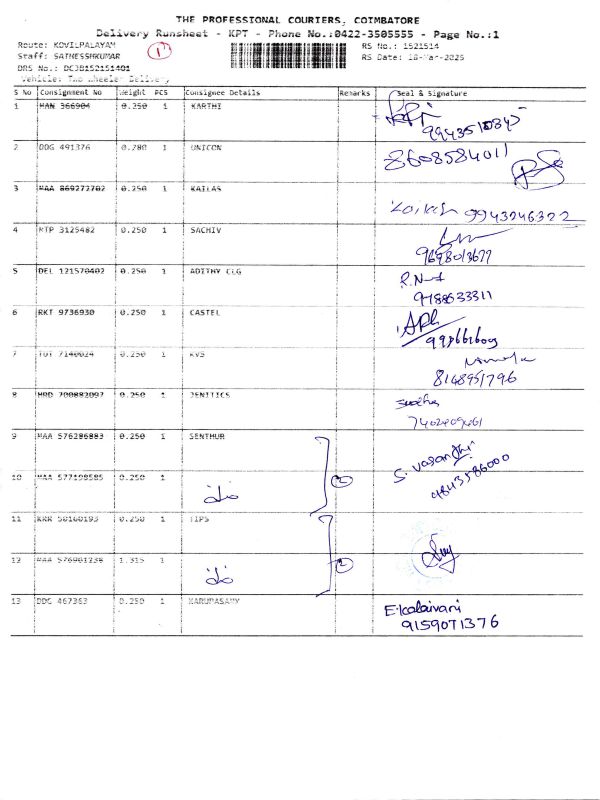 THE PROFESSIONAL COURIERS, COIMBATORE
Delivery Runsheet - KPT - Phone No.:0422-3505555 - Page No.:1
Route: KOVILPALAYAM
Staff: SATHESSHKUMAR
DRS No.: DCJB152151401
Vehicle: Two Wheeler Delivery
1
RS No.: 1521514
RS Date: 18-Mar-2025
S No Consignment No Weight PCS Consignee Details Remarks Seal & Signature
1 MAN 366904 0.250 1 KARTHI
9943510845
2 DDG 491376 0.200 1 UNICON 8608584011
3 MAA 869272702 0.250 1 KAILAS 9943246322
4 KTP 3125482 0.250 1 SACHIV
9698013677
5 DEL 121570402 0.250 1 ADITHY CLG
9788533311
6 RKT 9736930 0.250 1 CASTEL
7 TUT 7140024 0.250 1 KVS
8148951796
8 HRD 700882097 0.250 1 JENITICS
9 MAA 576286883 0.250 1 SENTHUR
10 MAA 577198585 0.250 1 2 S. Vasandhi
9843586000
11 KRR 50160193 0.250 1 TIPS
12 MAA 576901238 1.315 1 2
13 DDG 467363 0.250 1 KARUPASAMY E.kalaivani
9159071376